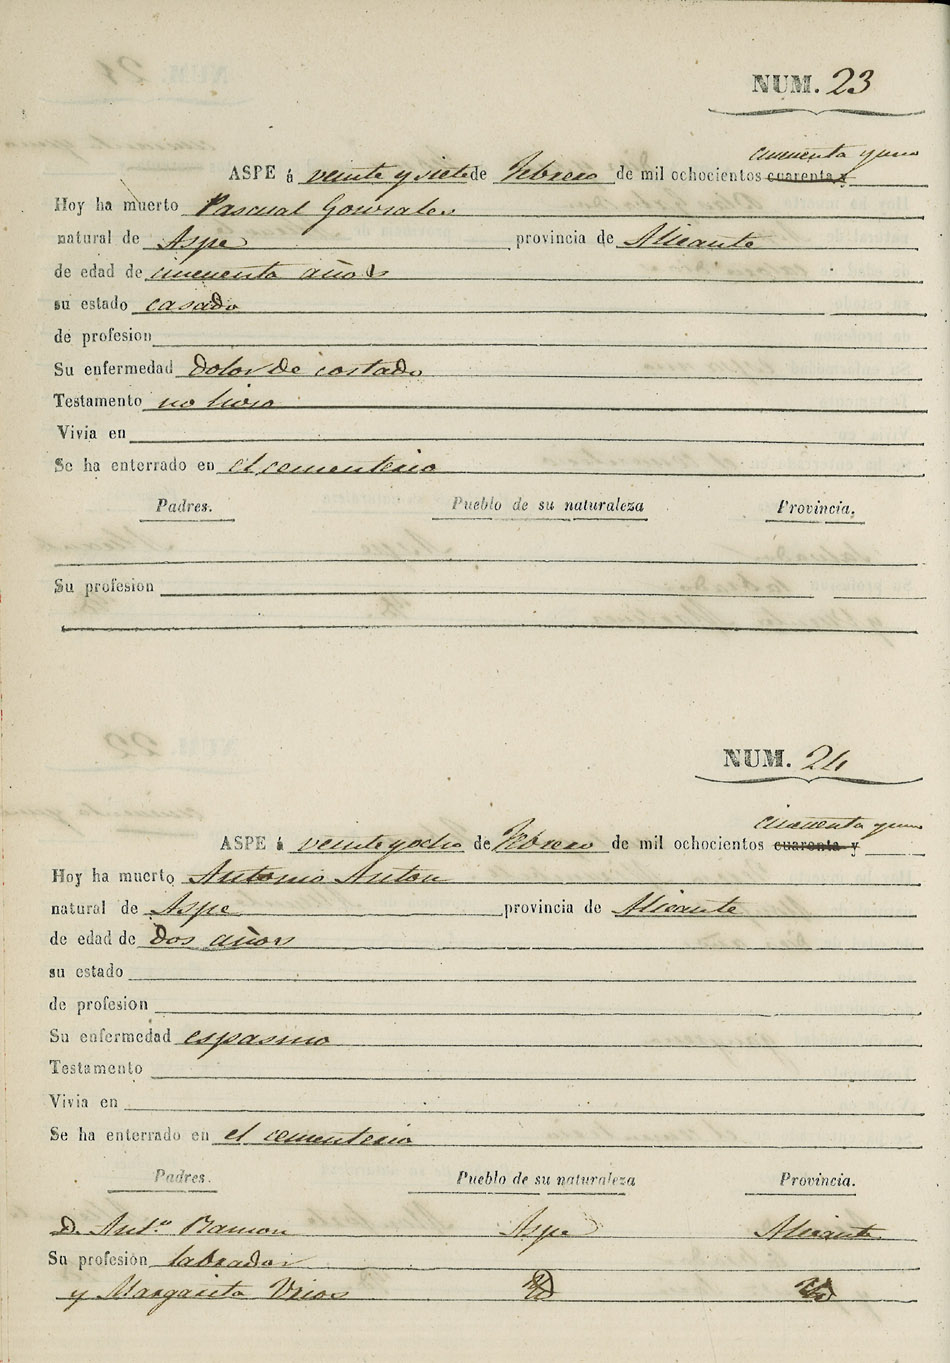 NUM. 23
cincuenta y uno
ASPE á veinte y siete de Febrero de mil ochocientos cuarenta y
Hoy ha muerto Pascual Gonzales
natural de Aspe provincia de Alicante
de edad de cincuenta años
su estado casado
de profesion
Su enfermedad dolor de costado
Testamento no hizo
Vivia en
Se ha enterrado en el cementerio
Padres. Pueblo de su naturaleza Provincia.
Su profesion
NUM. 24
cincuenta y uno
ASPE á veinte y ocho de Febrero de mil ochocientos cuarenta y
Hoy ha muerto Antonio Anton
natural de Aspe provincia de Alicante
de edad de dos años
su estado
de profesion
Su enfermedad espasmo
Testamento
Vivia en
Se ha enterrado en el cementerio
Padres. Pueblo de su naturaleza Provincia.
D. Antº Ramon Aspe Alicante
Su profesion labrador
y Margarita Id Id